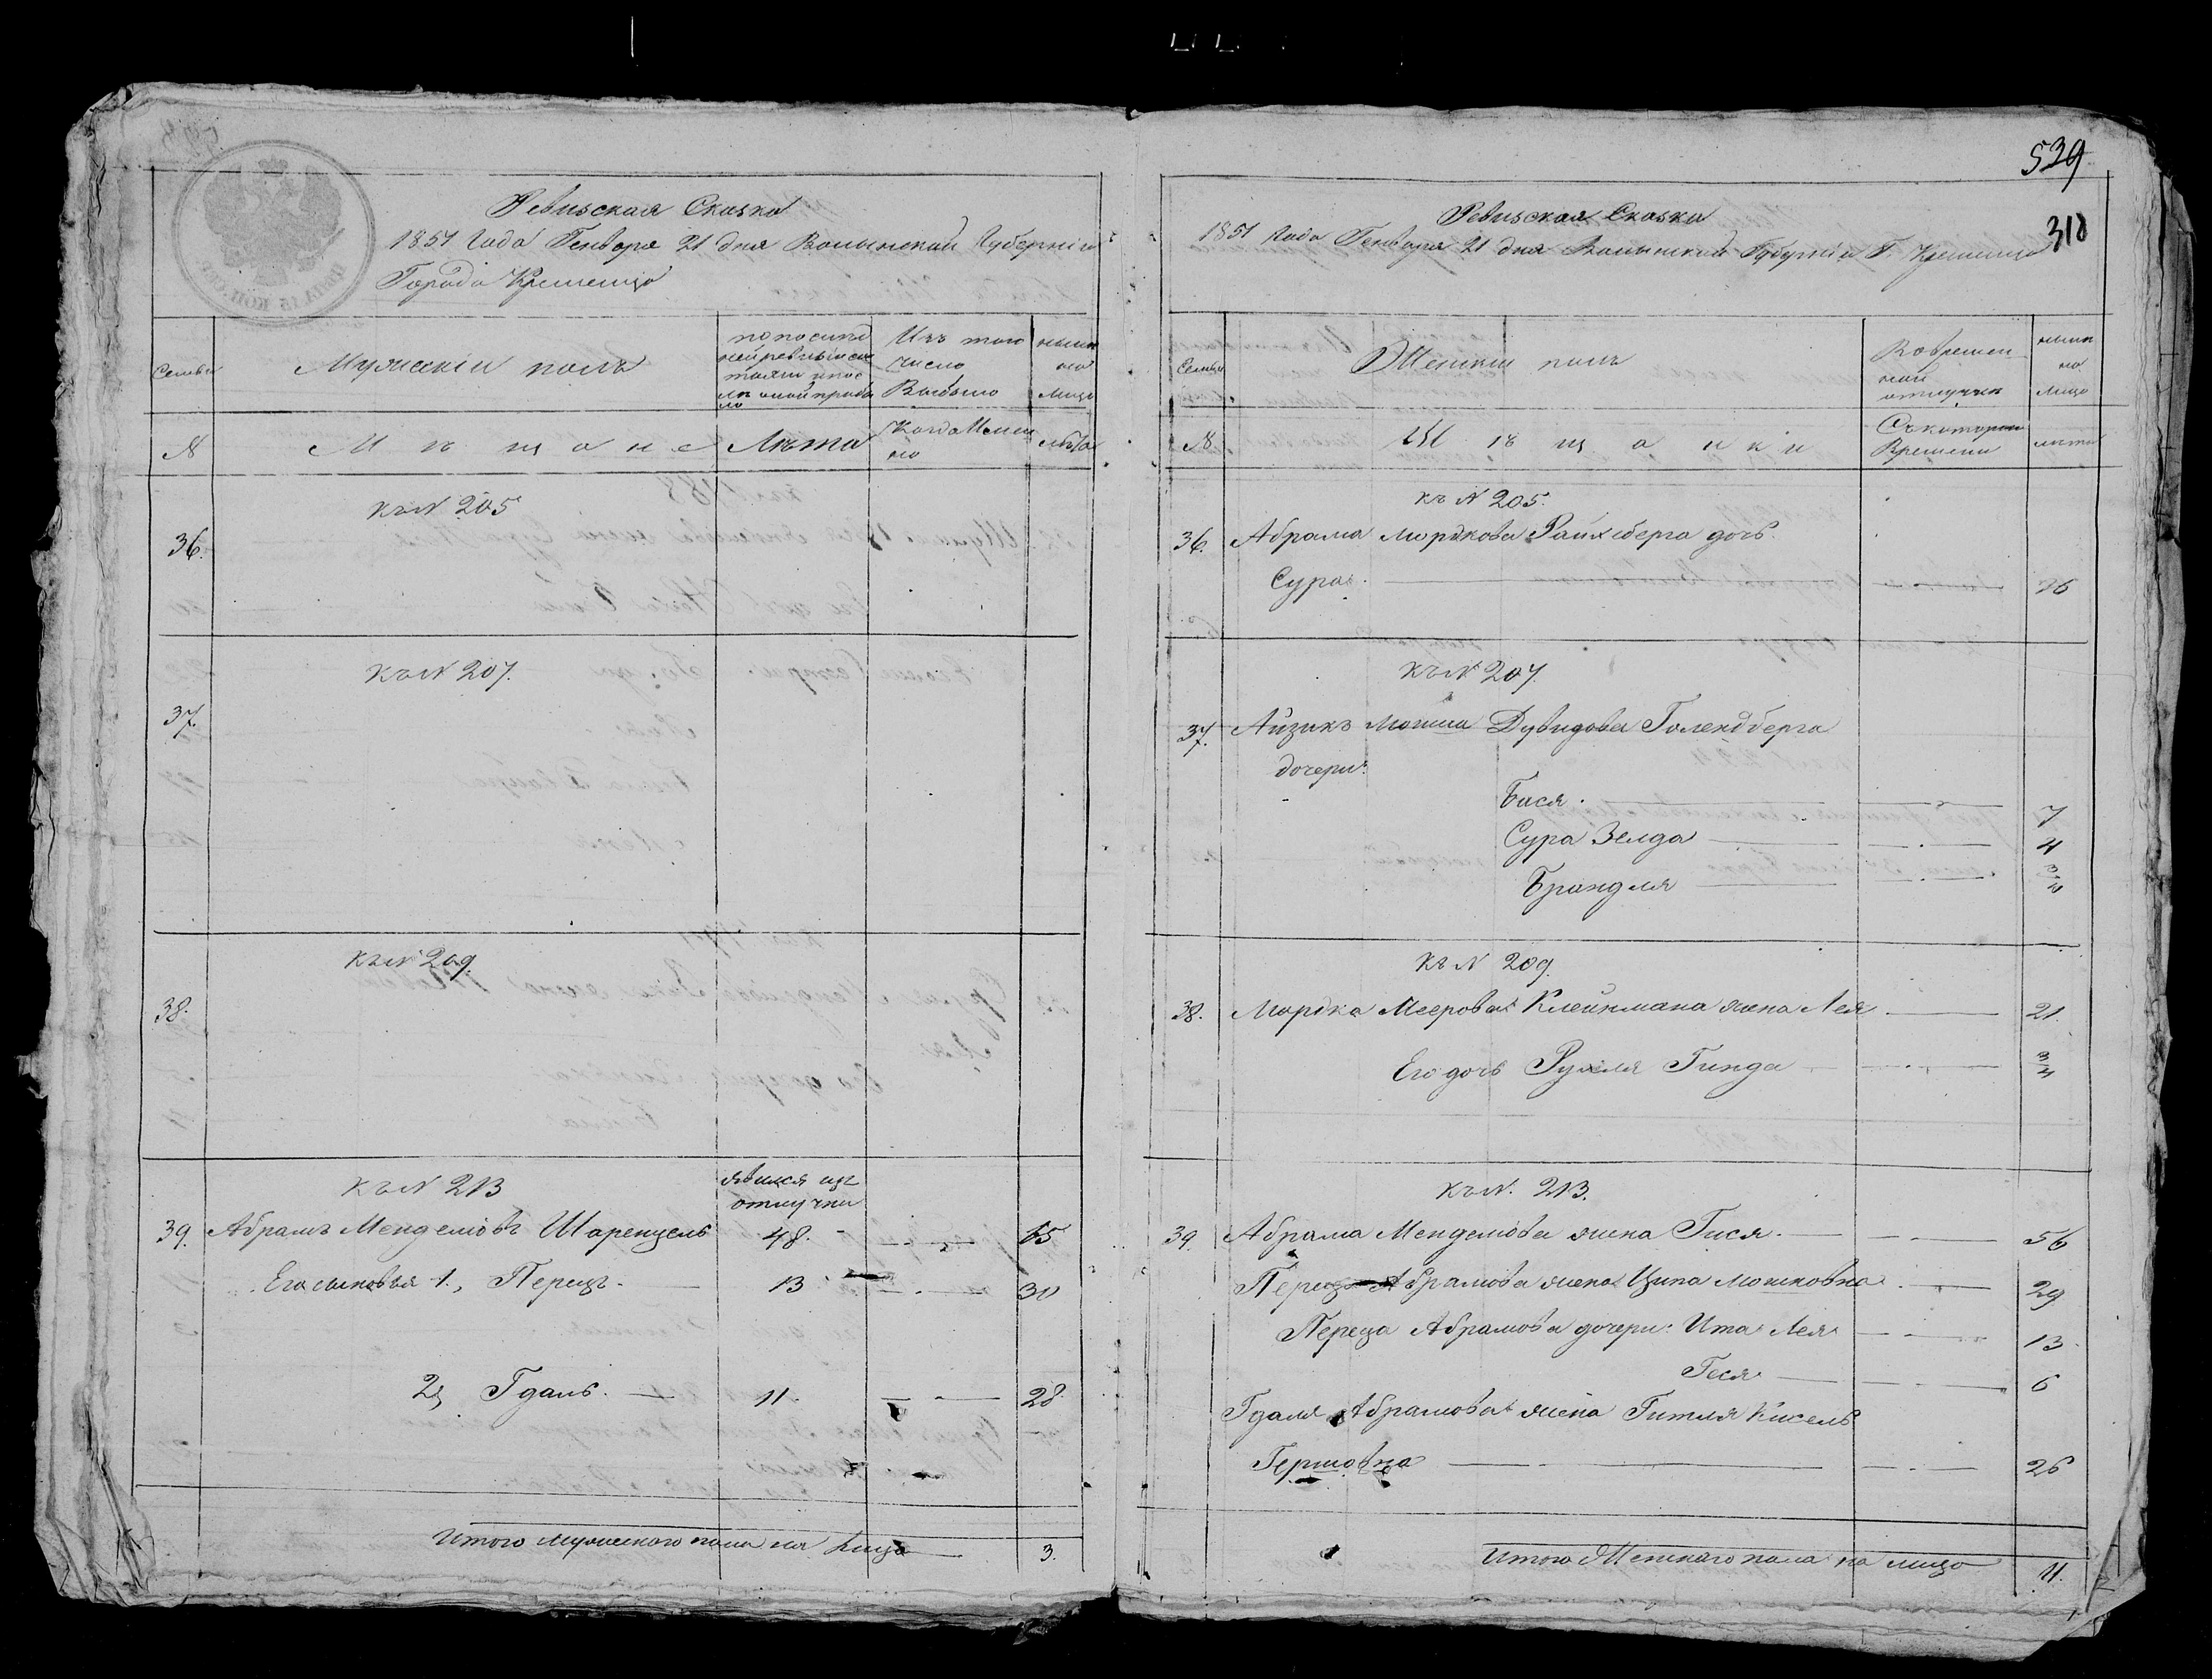 Ревизская Сказка
1851 Года Генваря 21 дня Волынской Губерніи
Города Кременца
Семьи
Мужескій полъ
по послед
ней ревизіи со
стояло и пос
лѣ оной прибы
ло
Изъ того
числа
Выбыло
ныне
на
лицо
№
М ѣ щ а н е
Лѣта
Когда Имен
но
лѣта
къ № 205
36.
къ № 207.
37.
къ № 209.
38.
къ № 213
явился изъ
отлучки
39. Абрамъ Менделіовъ Шаренцель 48. 65
Его сыновья 1., Перецъ 13 30
2, Гдаль. 11. 28
Итого мужескаго пола на лицо 3.
539
310
Ревизская Сказка
1851 Года Генваря 21 дня Волынской Губерніи Г. Кременца
Семьи
Женскій полъ
Во времен
ной
отлучкѣ
ныне
на
лицо
№
М ѣ щ а н к и
Съ котораго
Времени
лѣта
къ № 205.
36. Абрама Мордкова Райхберга дочь
Сура 26
къ № 207.
37. Айзикъ Мошка Дувидова Голендберга
дочери:
Бася 7
Сура Зелда 4
Брандля
къ № 209.
38. Мордка Меерова Клейнмана жена Лея 21.
Его дочь Рухля Гинда 3/4
къ №. 213.
39. Абрама Менделіова жена Гися 56
Переца Абрамова жена Ципа Мошковна 29
Переца Абрамова дочери: Ита Лея 13
Геся 6
Гдаля Абрамова жена Гитля Кисель
Гершовна 26
Итого Женскаго пола на лицо 11.